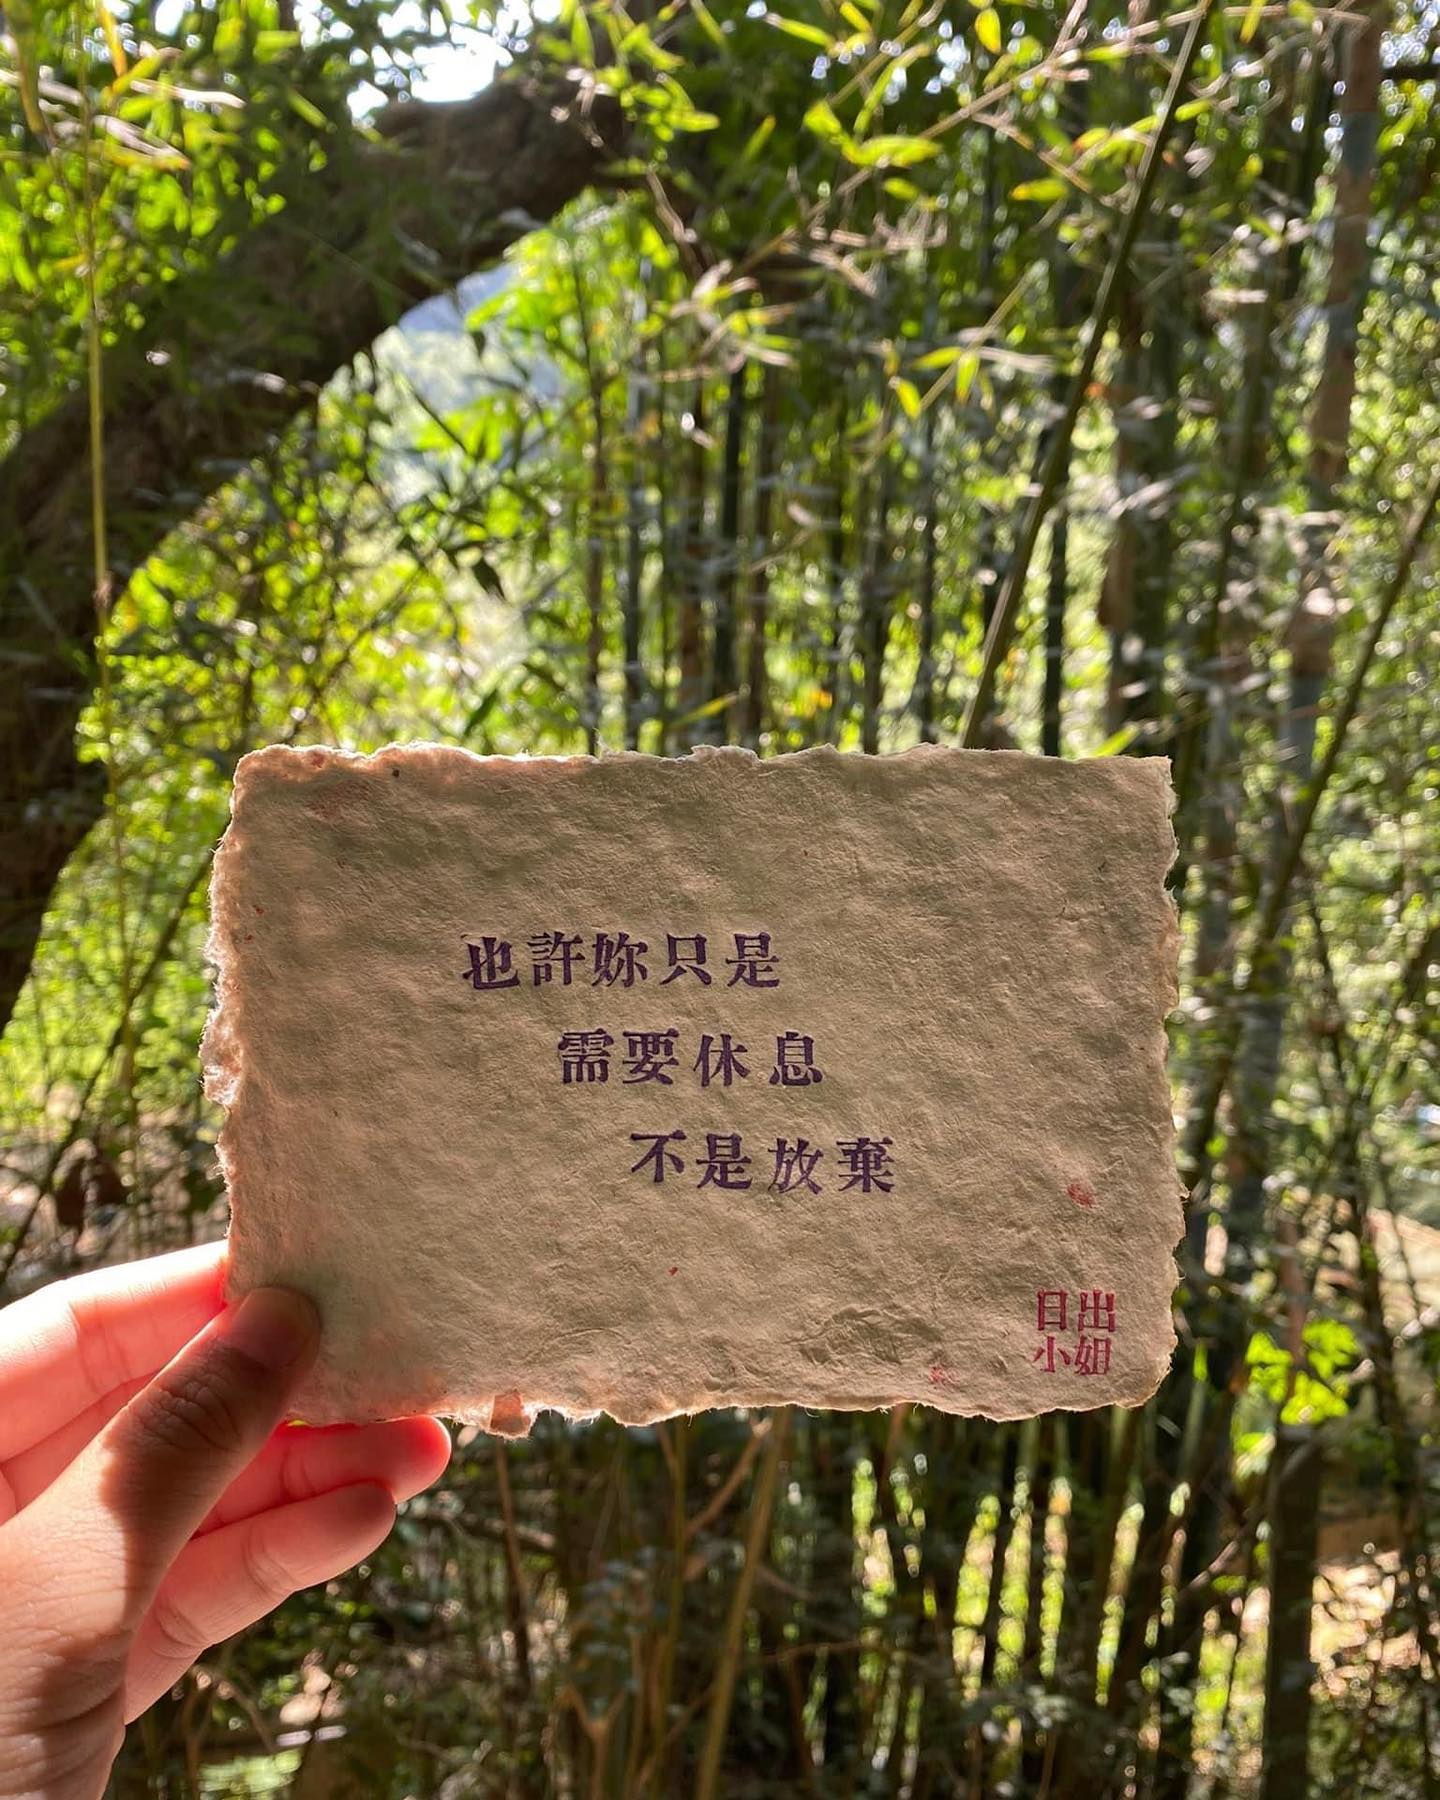 也許妳只是
需要休息
不是放棄
日出
小姐